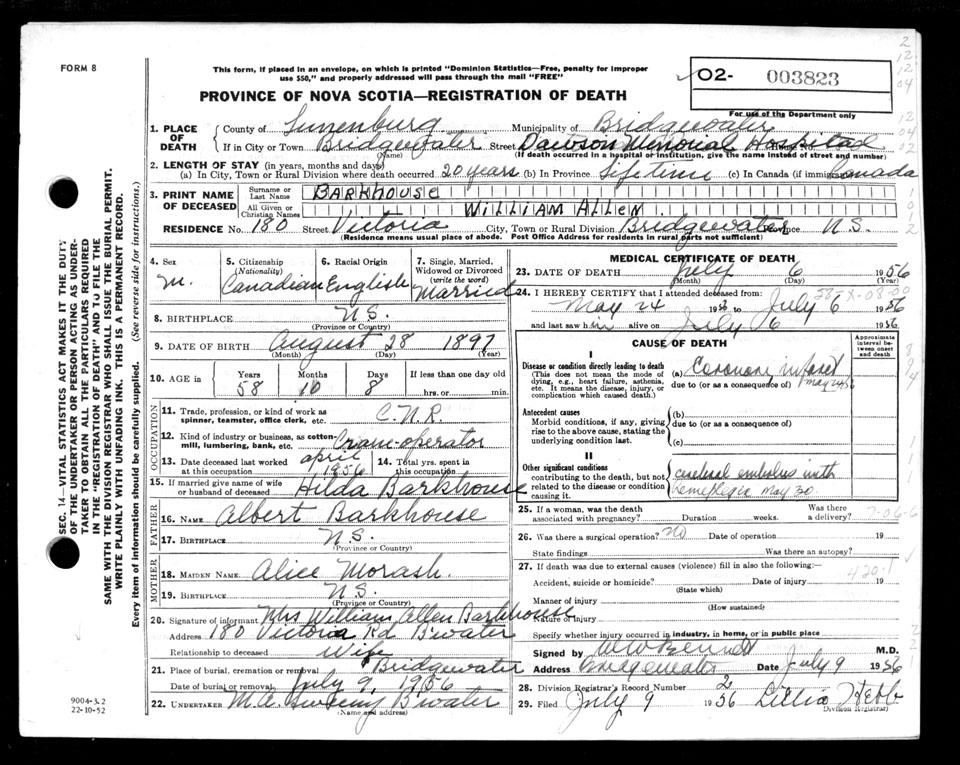 FORM 8
This form, if placed in an envelope, on which is printed "Dominion Statistics—Free, penalty for improper
use $50," and properly addressed will pass through the mail "FREE"
O2- 003823
For use of the Department only
PROVINCE OF NOVA SCOTIA—REGISTRATION OF DEATH
1. PLACE OF DEATH
County of Lunenburg Municipality of Bridgewater
If in City or Town Bridgewater Street Dawson Memorial Hospital
(Name) (If death occurred in a hospital or institution, give the name instead of street and number)
2. LENGTH OF STAY (in years, months and days)
(a) In City, Town or Rural Division where death occurred 20 years (b) In Province Lifetime (c) In Canada (if immigrant) Canada
3. PRINT NAME OF DECEASED
Surname or Last Name BARKHOUSE
All Given or Christian Names WILLIAM ALLEN
RESIDENCE No. 180 Street Victoria City, Town or Rural Division Bridgewater Province N.S.
(Residence means usual place of abode. Post Office Address for residents in rural parts not sufficient)
4. Sex M.
5. Citizenship (Nationality) Canadian
6. Racial Origin English
7. Single, Married, Widowed or Divorced (write the word) Married
8. BIRTHPLACE N.S.
(Province or Country)
9. DATE OF BIRTH August 28 1897
(Month) (Day) (Year)
10. AGE in Years 58 Months 10 Days 8 If less than one day old
hrs. or min.
OCCUPATION
11. Trade, profession, or kind of work as
spinner, teamster, office clerk, etc. C.N.R.
12. Kind of industry or business, as cotton-
mill, lumbering, bank, etc. Crane-operator
13. Date deceased last worked at this occupation April 1956
14. Total yrs. spent in this occupation
15. If married give name of wife
or husband of deceased Hilda Barkhouse
FATHER
16. NAME Albert Barkhouse
17. BIRTHPLACE N.S.
(Province or Country)
MOTHER
18. MAIDEN NAME Alice Morash.
19. BIRTHPLACE N.S.
(Province or Country)
20. Signature of informant Mrs William Allen Barkhouse
Address 180 Victoria Rd B'water
Relationship to deceased Wife
21. Place of burial, cremation or removal Bridgewater
Date of burial or removal July 9, 1956
22. UNDERTAKER M.A. Sweeny B'water
(Name and address)
MEDICAL CERTIFICATE OF DEATH
23. DATE OF DEATH July 6 1956
(Month) (Day) (Year)
24. I HEREBY CERTIFY that I attended deceased from:
May 24 1956 to July 6 1956
and last saw him alive on July 6 1956
CAUSE OF DEATH
Approximate interval between onset and death
I
Disease or condition directly leading to death
(This does not mean the mode of
dying, e.g., heart failure, asthenia,
etc. It means the disease, injury, or
complication which caused death.)
(a) Coronary infarct
due to (or as a consequence of) May 24
Antecedent causes
Morbid conditions, if any, giving
rise to the above cause, stating the
underlying condition last.
(b)
due to (or as a consequence of)
(c)
II
Other significant conditions
contributing to the death, but not
related to the disease or condition
causing it.
cerebral embolus with
hemiplegia May 30
25. If a woman, was the death
associated with pregnancy? Duration weeks. Was there a delivery?
26. Was there a surgical operation? No Date of operation 19
State findings Was there an autopsy?
27. If death was due to external causes (violence) fill in also the following:
420.1
Accident, suicide or homicide? Date of injury 19
(State which)
Manner of injury
(How sustained)
Nature of injury
Specify whether injury occurred in industry, in home, or in public place
Signed by M.D.
Address Bridgewater Date July 9 1956
28. Division Registrar's Record Number 2
29. Filed July 9 1956 Lillia Hebb
Division Registrar)
SEC. 14—VITAL STATISTICS ACT MAKES IT THE DUTY
OF THE UNDERTAKER OR PERSON ACTING AS UNDER-
TAKER TO OBTAIN ALL THE PARTICULARS REQUIRED
IN THE "REGISTRATION OF DEATH" AND TO FILE THE
SAME WITH THE DIVISION REGISTRAR WHO SHALL ISSUE THE BURIAL PERMIT.
WRITE PLAINLY WITH UNFADING INK. THIS IS A PERMANENT RECORD.
Every item of information should be carefully supplied. (See reverse side for instructions.)
9004-3.2
22-10-52